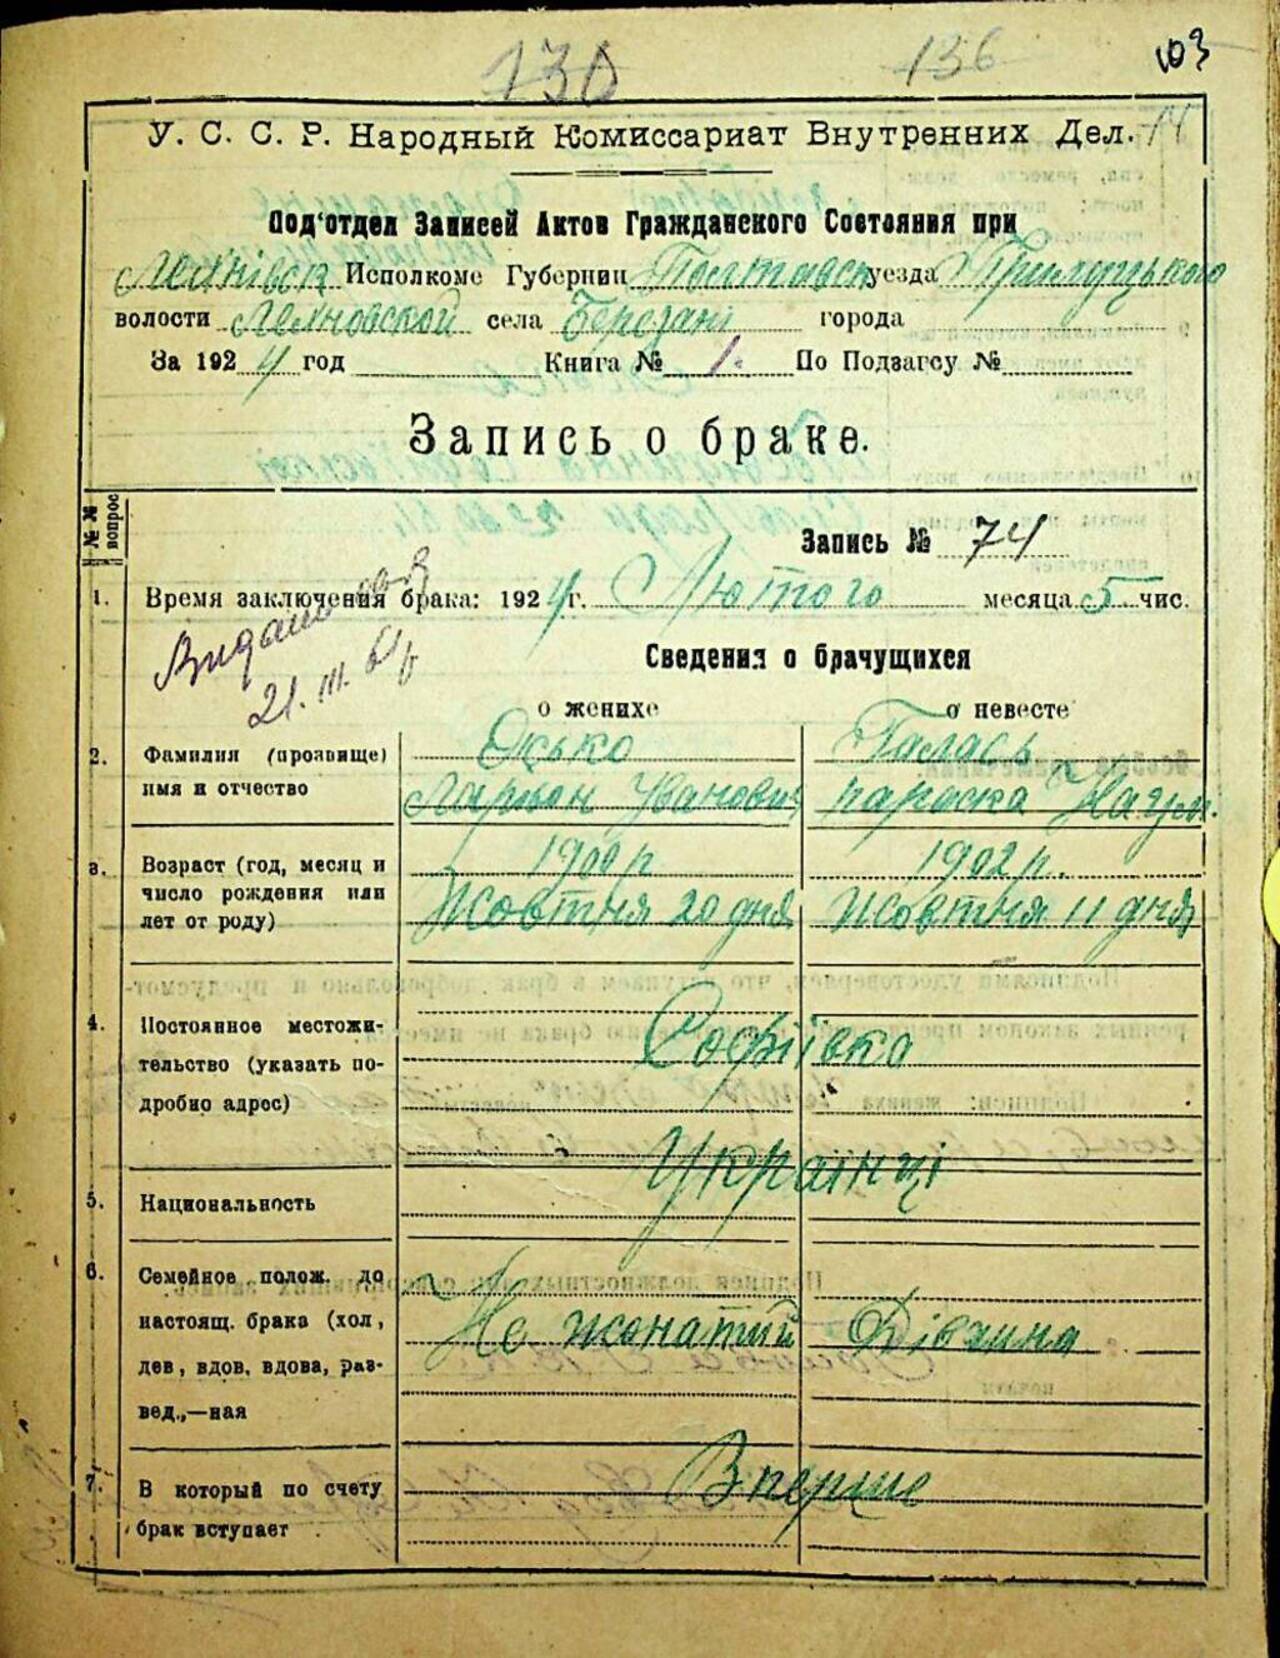 130 136 103
У. С. С. Р. Народный Комиссариат Внутренних Дел. 14
Под'отдел Записей Актов Гражданского Состояния при
Исполкоме Губернии Полтавск уезда Прилуцького
волости села Березані города
За 1924 год Книга № 1. По Подзагсу №
Запись о браке.
№№ вопрос
Запись № 74
1. Время заключения брака: 1924 г. Лютого месяца 5 чис.
Видано
21. III.
Сведения о брачущихся
о женихе о невесте
2. Фамилия (прозвище) имя и отчество
Оцько
Ларион Уванович
Галась
параска Наум.
3. Возраст (год, месяц и число рождения или лет от роду)
1900 р
Жовтня 20 дня
1902 р.
Жовтня 11 дня
4. Постоянное местожительство (указать подробно адрес)
Софіївка
5. Национальность
Українці
6. Семейное полож. до настоящ. брака (хол, дев, вдов, вдова, развед.,—ная
Не жонатий
Дівчина
7. В который по счету брак вступает
Вперше